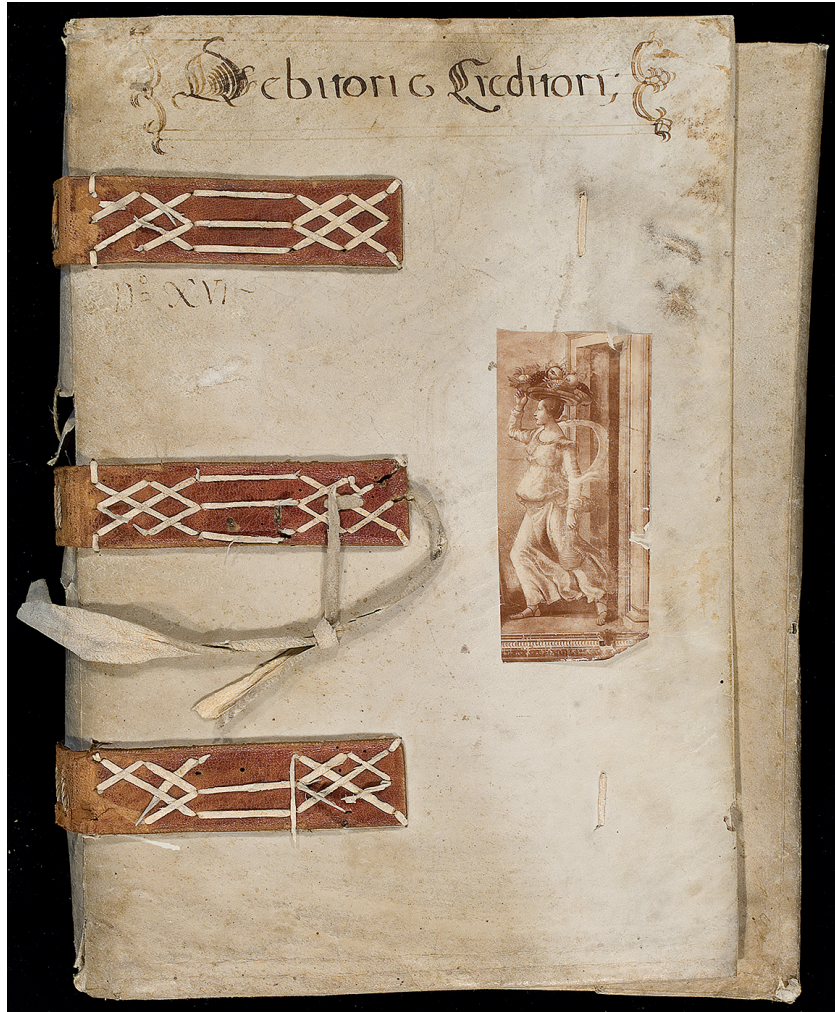 Debitori e Creditori;
No XVI